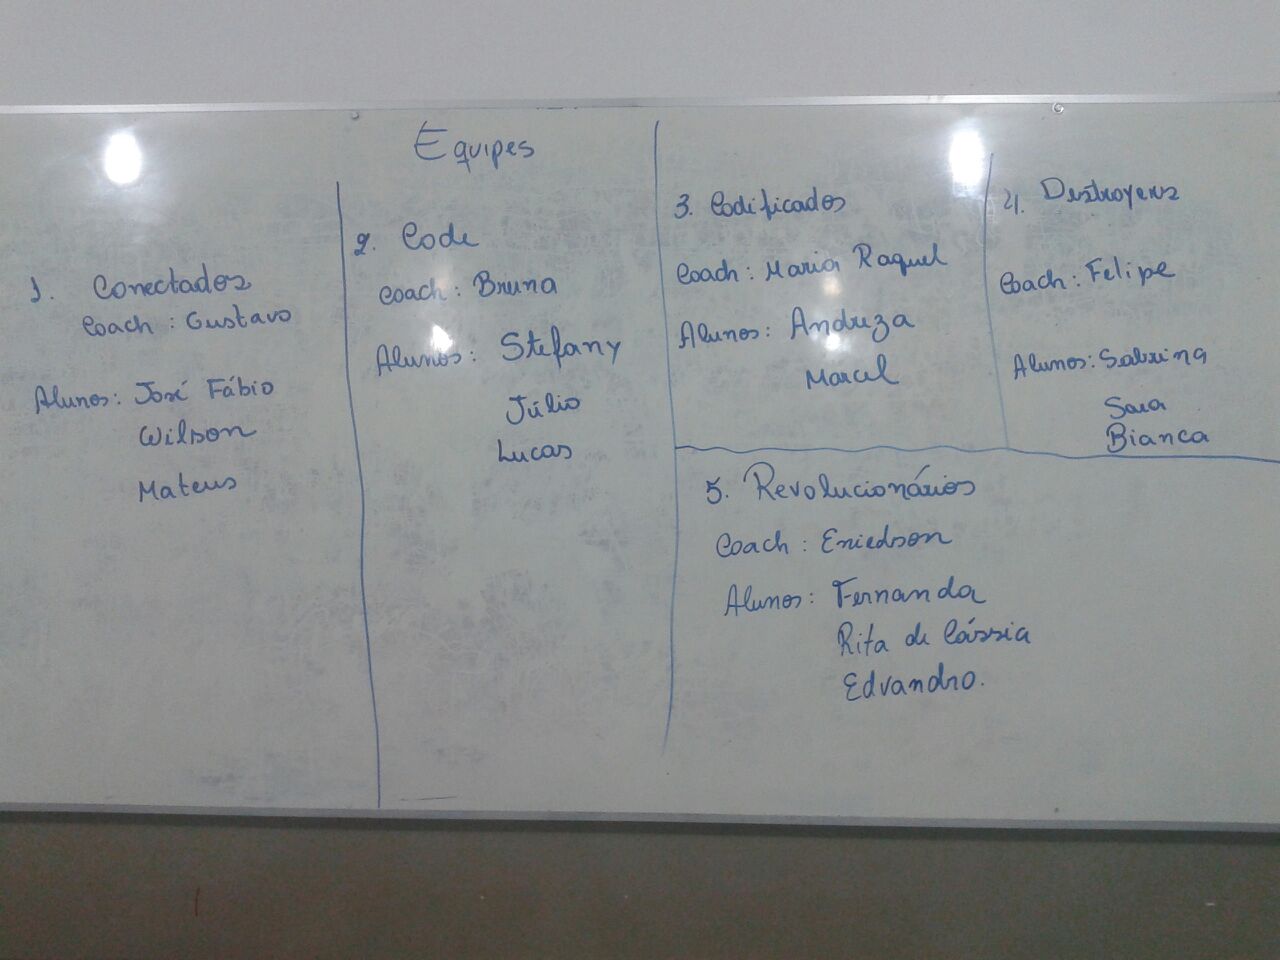 Equipes
1. Conectados
Coach: Gustavo
Alunos: José Fábio
Wilson
Mateus
2. Code
Coach: Bruna
Alunos: Stefany
Júlio
Lucas
3. Codificados
Coach: Maria Raquel
Alunos: Andreza
Marcel
4. Destroyers
Coach: Felipe
Alunos: Sabrina
Sara
Bianca
5. Revolucionários
Coach: Eniedson
Alunos: Fernanda
Rita de Cássia
Edvandro.